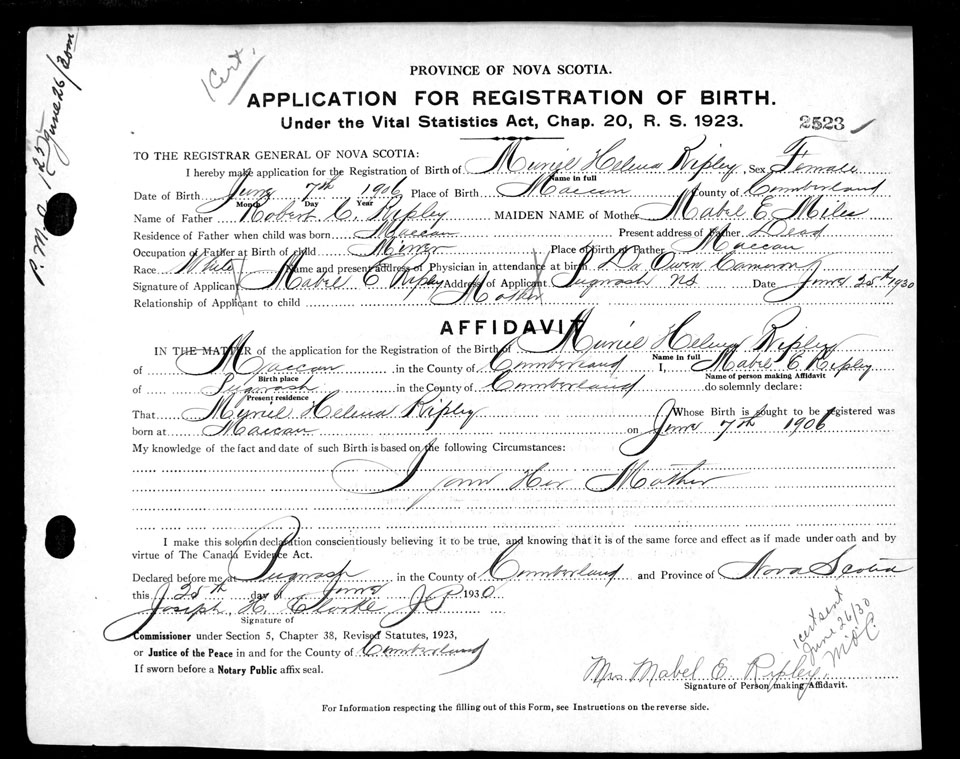 P.M.O. 1.25 June 26/30 mm
1 Cert.
PROVINCE OF NOVA SCOTIA.
APPLICATION FOR REGISTRATION OF BIRTH.
Under the Vital Statistics Act, Chap. 20, R. S. 1923.
2523
TO THE REGISTRAR GENERAL OF NOVA SCOTIA:
I hereby make application for the Registration of Birth of Muriel Helena Ripley, Sex Female
Name in full
Date of Birth June 7th 1906 Place of Birth Maccan County of Cumberland
Month Day Year
Name of Father Robert C. Ripley MAIDEN NAME of Mother Mabel E. Miles
Residence of Father when child was born Maccan Present address of Father Dead
Occupation of Father at Birth of child Miner Place of birth of Father Maccan
Race White Name and present address of Physician in attendance at birth Dr Owen Cameron
Signature of Applicant Mabel E Ripley Address of Applicant Pugwash NS Date June 25th 1930
Relationship of Applicant to child Mother
AFFIDAVIT
IN THE MATTER of the application for the Registration of the Birth of Muriel Helena Ripley
Name in full
of Maccan in the County of Cumberland I, Mabel E Ripley
Birth place Name of person making Affidavit
of Pugwash in the County of Cumberland do solemnly declare:
Present residence
That Muriel Helena Ripley Whose Birth is sought to be registered was
born at Maccan on June 7th 1906
My knowledge of the fact and date of such Birth is based on the following Circumstances:
I am Her Mother
I make this solemn declaration conscientiously believing it to be true, and knowing that it is of the same force and effect as if made under oath and by
virtue of The Canada Evidence Act.
Declared before me at Pugwash in the County of Cumberland and Province of Nova Scotia
this 25th day of June 1930
Joseph H. Clarke J P
Signature of
Commissioner under Section 5, Chapter 38, Revised Statutes, 1923,
or Justice of the Peace in and for the County of Cumberland
If sworn before a Notary Public affix seal.
1 cert sent
June 26/30
Mrs Mabel E. Ripley.
Signature of Person making Affidavit.
For Information respecting the filling out of this Form, see Instructions on the reverse side.